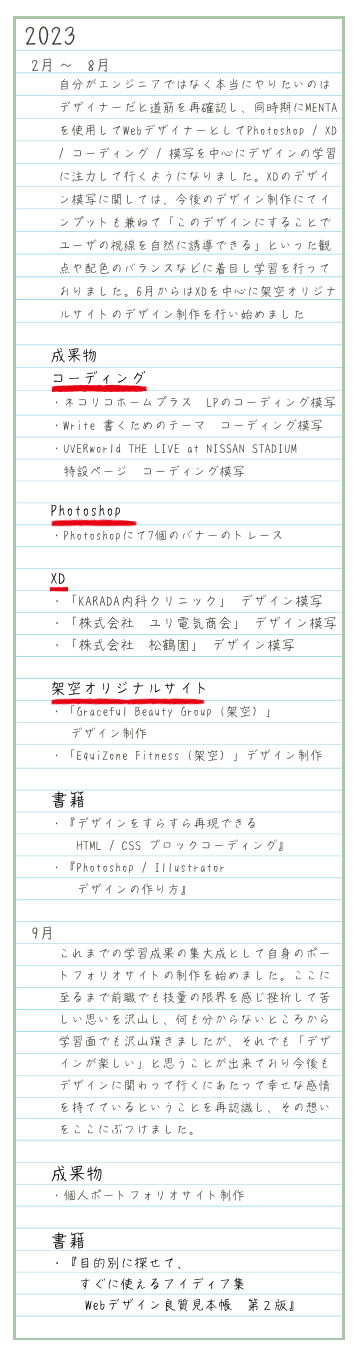 2023
2月 ～ 8月
自分がエンジニアではなく本当にやりたいのは
デザイナーだと道筋を再確認し、同時期にMENTA
を使用してWebデザイナーとしてPhotoshop / XD
/ コーディング / 模写を中心にデザインの学習
に注力して行くようになりました。XDのデザイ
ン模写に関しては、今後のデザイン制作にてイ
ンプットも兼ねて「このデザインにすることで
ユーザの視線を自然に誘導できる」といった観
点や配色のバランスなどに着目し学習を行って
おりました。6月からはXDを中心に架空オリジナ
ルサイトのデザイン制作を行い始めました
成果物
コーディング
・ネコリコホームプラス LPのコーディング模写
・Write 書くためのテーマ コーディング模写
・UVERworld THE LIVE at NISSAN STADIUM
特設ページ コーディング模写
Photoshop
・Photoshopにて7個のバナーのトレース
XD
・「KARADA内科クリニック」 デザイン模写
・「株式会社 ユリ電気商会」 デザイン模写
・「株式会社 松鶴園」 デザイン模写
架空オリジナルサイト
・「Graceful Beauty Group（架空）」
デザイン制作
・「EquiZone Fitness（架空）」デザイン制作
書籍
・『デザインをすらすら再現できる
HTML / CSS ブロックコーディング』
・『Photoshop / Illustrator
デザインの作り方』
9月
これまでの学習成果の集大成として自身のポー
トフォリオサイトの制作を始めました。ここに
至るまで前職でも技量の限界を感じ挫折して苦
しい思いを沢山し、何も分からないところから
学習面でも沢山躓きましたが、それでも「デザ
インが楽しい」と思うことが出来ており今後も
デザインに関わって行くにあたって幸せな感情
を持てているということを再認識し、その想い
をここにぶつけました。
成果物
・個人ポートフォリオサイト制作
書籍
・『目的別に探せて、
すぐに使えるアイディア集
Webデザイン良質見本帳 第２版』